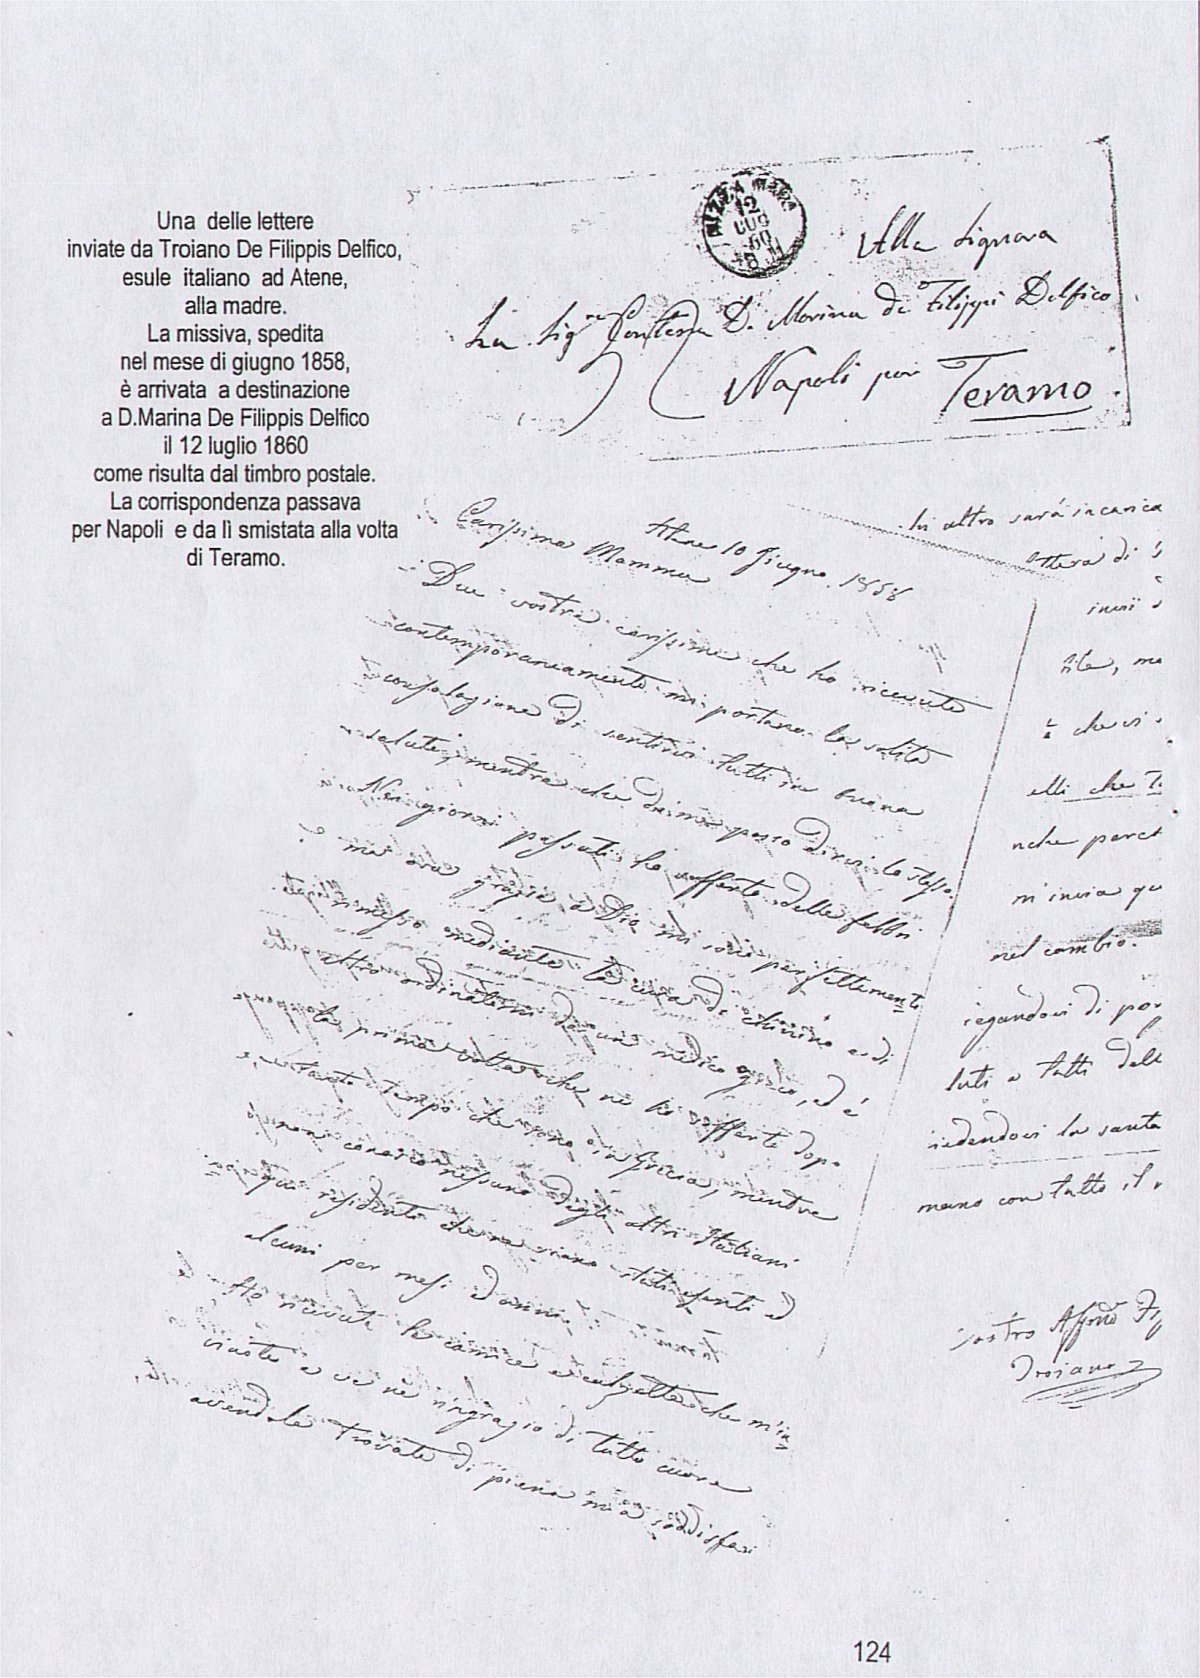 Una delle lettere
inviate da Troiano De Filippis Delfico,
esule italiano ad Atene,
alla madre.
La missiva, spedita
nel mese di giugno 1858,
è arrivata a destinazione
a D.Marina De Filippis Delfico
il 12 luglio 1860
come risulta dal timbro postale.
La corrispondenza passava
per Napoli e da lì smistata alla volta
di Teramo.
12
LUG
60
Alla Signora
La Sig.ra Contessa D. Marina de Filippi Delfico
Napoli per Teramo
Atene 10 Giugno 1858
Carissima Mamma
Due vostre carissime che ho ricevute
contemporaneamente mi portano la solita
consolazione di sentirvi tutti in buona
salute, mentre che di me posso dirvi lo stesso.
Nei giorni passati ho sofferto delle febbri
ma ora grazie a Dio mi sono perfettamente
rimesso mediante la cura di chinino e di
altro ordinatomi da un medico greco, ed è
la prima volta che ne ho sofferto dopo
tanto tempo che sono in Grecia, mentre
non conosco nessuno degli altri Italiani
qui residenti che ne siano stati esenti ed
alcuni per mesi ed anni.
Ho ricevute le camice e calzette che m'in=
viaste e ve ne ringrazio di tutto cuore
avendole trovate di piena mia soddisfazi
In altro sarà incarica
ttera di
inviò
bile, ma
è che vi
elli che T
nche parec
m'invia qu
nel cambio.
iegandovi di por
luti a tutti dell
iedendovi la santa
mano con tutto il
Vostro Aff.mo Fig
Troiano
124